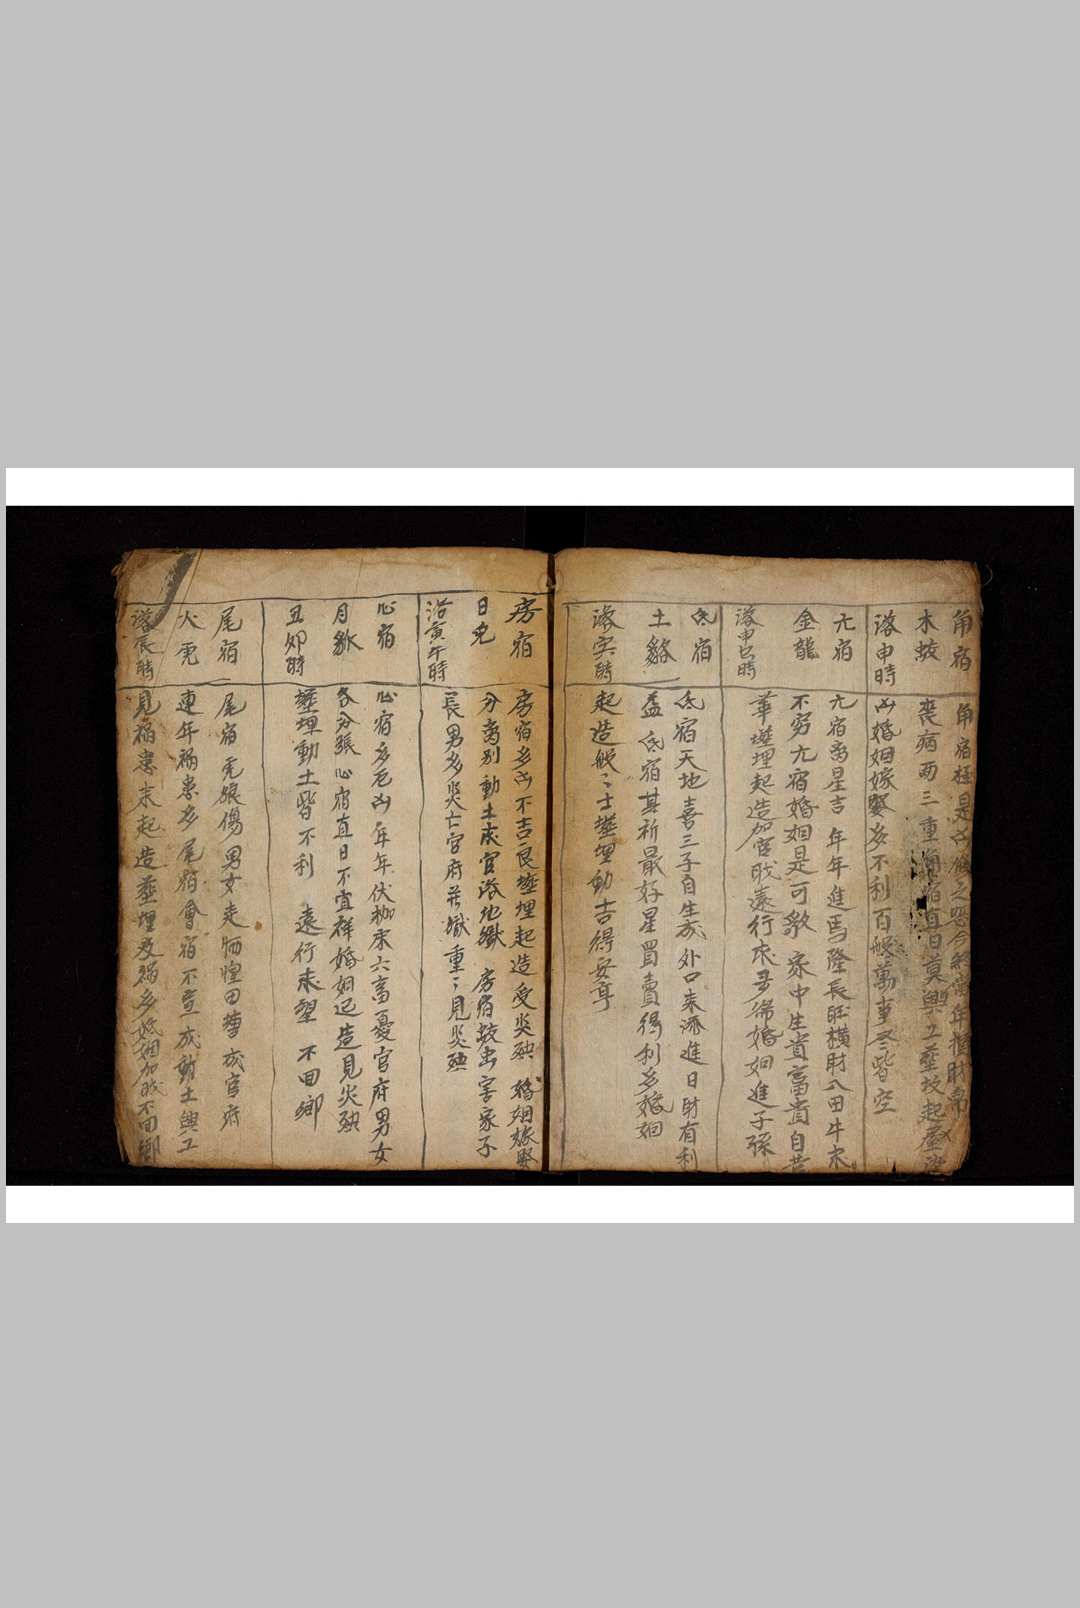 角宿
木蛟
落申時
角宿極是凶
喪病両三重角宿直日莫興工塟坟起屋
凶婚姻嫁娶多不利百般萬事尽皆空
亢宿
金龍
落申巳時
亢宿 星吉年年進馬隆長旺横財入田牛
不穷亢宿婚姻是可 家中生貴富貴自
華塟埋起造加官 遠行 婚姻進子孫
氐宿
土貉
落 時
氐宿天地喜三子自生成外口来添進日財有利
益氐宿其祈最好星買賣得利多婚姻
起造般〻士塟埋動吉得安亨
房宿
日兎
沿寅午時
房宿多凶不吉良塟埋起造受災殃婚姻嫁娶
分离别動土成官落地獄房宿 出害家子
長男多災亡官府 獄重〻見災殃
心宿
月狐
丑卯時
心宿多 凶年年伏枷来六畜憂官府男女
各分張心宿直日不宜祥婚姻起造見災殃
塟埋動土皆不利遠行来望不回鄉
尾宿
火
落辰時
尾宿 狼傷男女走 惶田蚕成官府
連年禍患多尾宿會宿不宜成動土興工
見禍患来起造塟埋及禍多婚姻 不回鄉